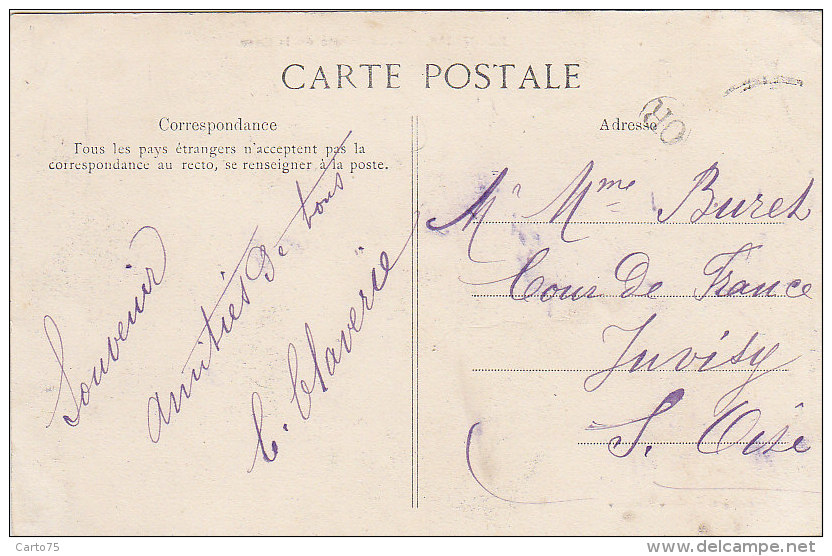 CARTE POSTALE
Correspondance
Tous les pays étrangers n'acceptent pas la
correspondance au recto, se renseigner à la poste.
Souvenir
amitiés de tous
C. Claverie
Adresse
OR
Mr Mme Buret
Cour de France
Juvisy
S. Oise
Carto75
www.delcampe.net